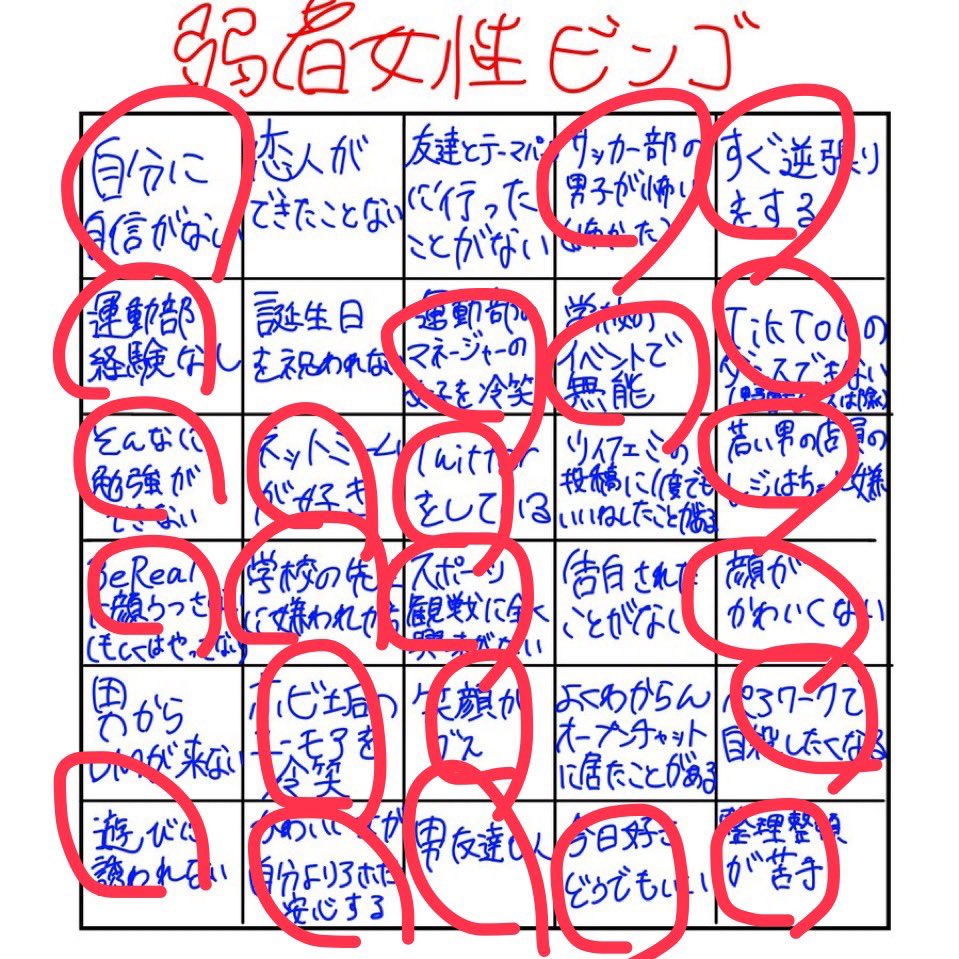 弱者女性ビンゴ
自分に
自信がない
恋人が
できたことない
友達とテーマパ
に行った
ことがない
サッカー部の
男子が怖い
すぐ逆張り
をする
運動部
経験なし
誕生日
を祝われない
運動部の
マネージャーの
女子を冷笑
学校の
イベントで
無能
TikTokの
ダンスできない
そんなに
勉強が
できない
ネットミーム
が好き
Twitter
をしている
ツイフェミの
投稿に1度でも
いいねしたことがある
若い男の店員の
レジはちょい嫌
BeReal
(もしくはやってない)
学校の先生
に嫌われがち
スポーツ
観戦に全く
興味がない
告白された
ことがない
顔が
かわいくない
男から
LINEが来ない
ホビ垢の
ユーモアを
冷笑
笑顔が
ブス
よくわからん
オープンチャット
に居たことがある
ペアワークで
自殺したくなる
遊びに
誘われない
かわいい女が
自分より下だと
安心する
男友達0人
今日好き
どうでもいい
整理整頓
が苦手